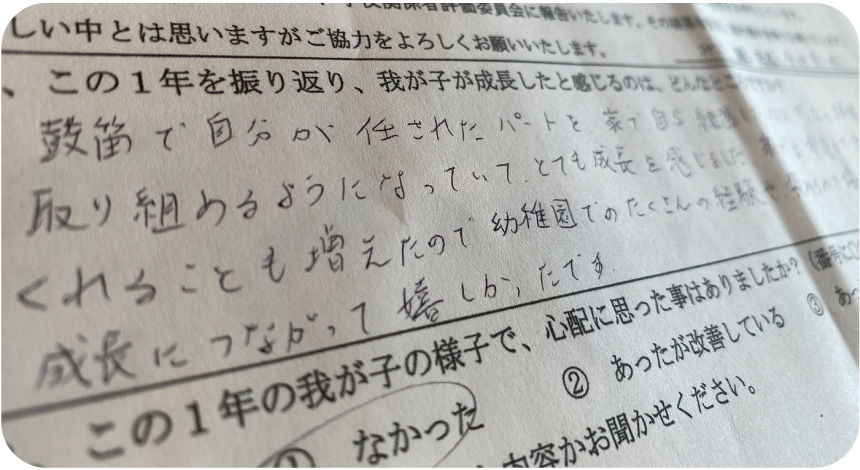 学校関係者評価委員会に報告いたします。その
しい中とは思いますがご協力をよろしくお願いいたします。
、この1年を振り返り、我が子が成長したと感じるのは、どんなところですか
鼓笛で自分が任されたパートを、家で自ら
取り組めるようになっていて、とても成長を感じました。
くれることも増えたので幼稚園でのたくさんの経験や
成長につながって嬉しかったです。
この1年の我が子の様子で、心配に思った事はありましたか?(番号に○
① なかった ② あったが改善している ③ あっ
内容かお聞かせください。